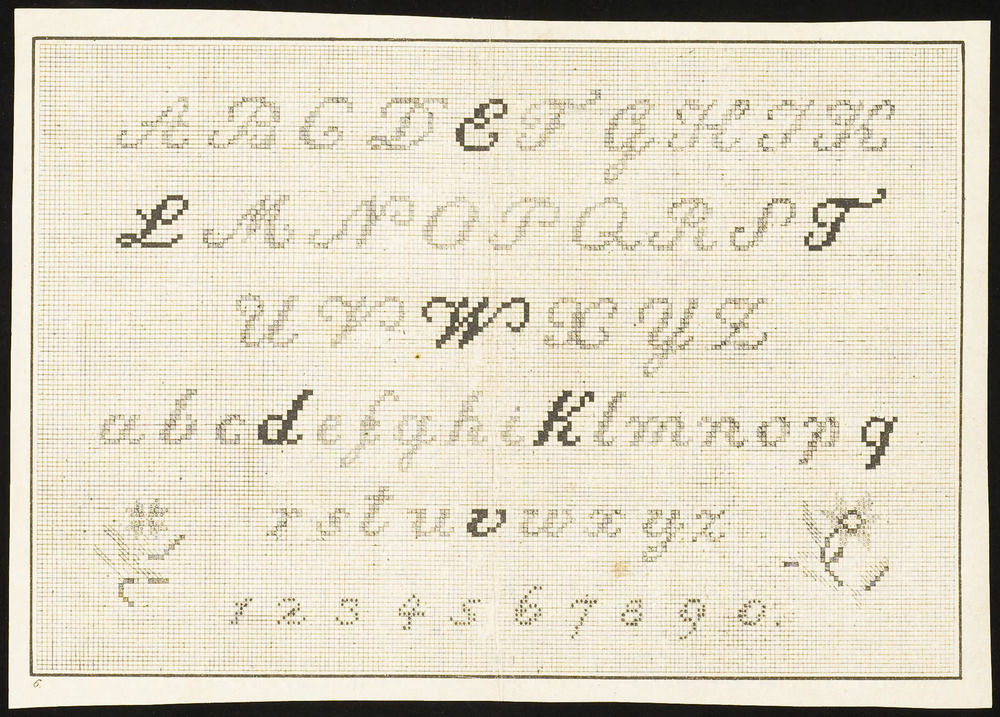 A B C D E F G H I K
L M N O P Q R S T
U V W X Y Z
a b c d e f g h i k l m n o p q
r s t u v w x y z
1 2 3 4 5 6 7 8 9 0.
6.